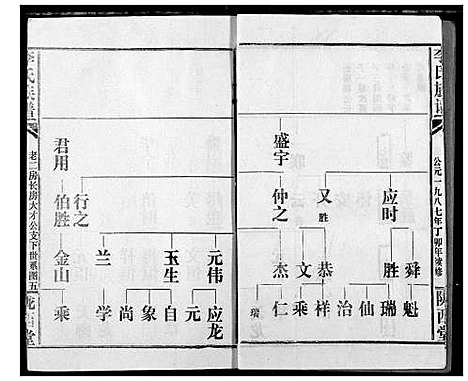 李氏族譜
公元一九八七年丁卯年被修
隴西堂
盛宇
仲之 又胜 应时
杰 文 恭 胜 舜
瑞龙 仁 乘 祥 治 仙 瑞 魁
李氏族譜
老二房长房大才公支下世系图五
隴西堂
君用
伯胜 行之
金山 兰 玉生 元伟
乘 学 尚 象 自 元 应龙